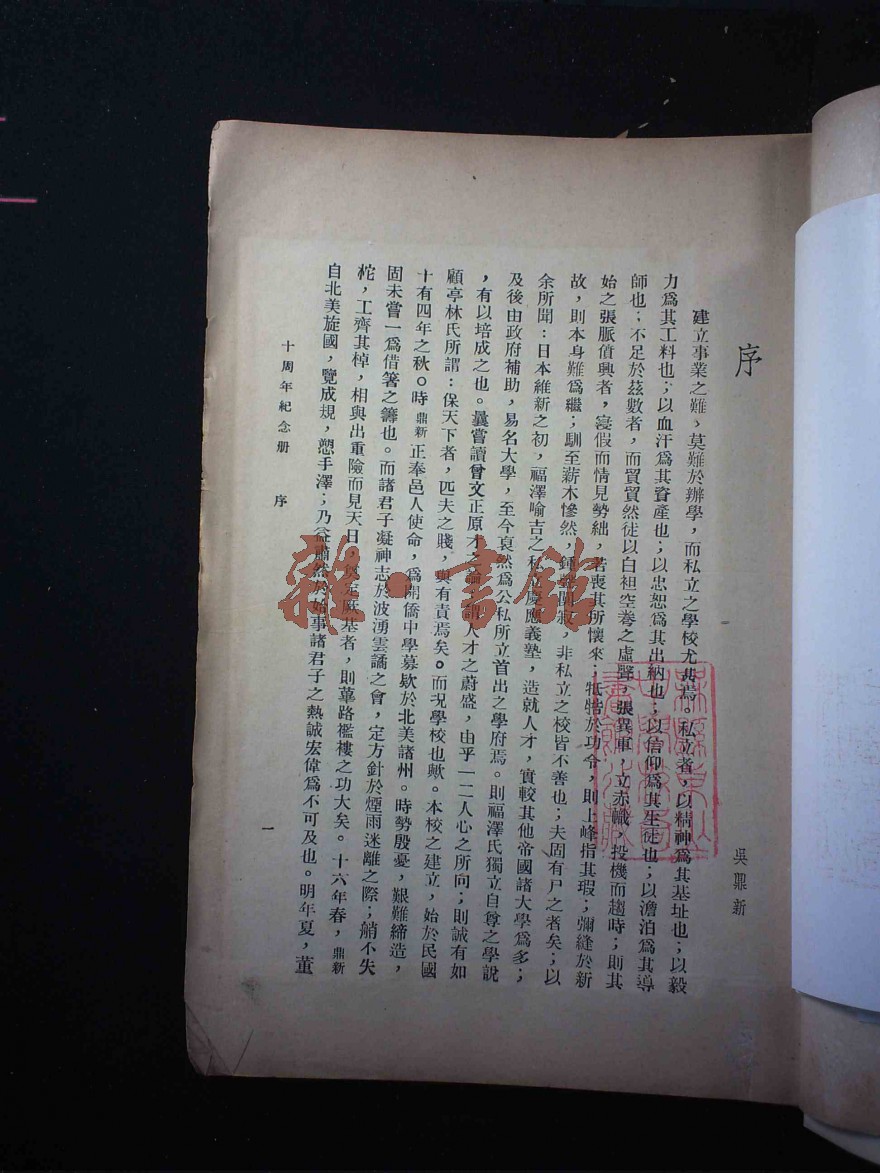 序
吳鼎新
建立事業之難、莫難於辦學，而私立之學校尤甚焉。私立者，以精神爲其基址也；以毅
力爲其工料也；以血汗爲其資產也；以忠恕爲其出納也；以信仰爲其生徒也；以澹泊爲其導
師也；不足於茲數者，而貿貿然徒以白袒空拳之虛聲，張異軍，立赤幟，投機而趨時；則其
始之張脈僨興者，寖假而情見勢絀，若喪其所懷來；牴牾於功令，則上峰指其瑕；彌縫於新
故，則本身難爲繼；馴至薪木慘然，鍾聲闃寂，非私立之校皆不善也；夫固有尸之者矣；以
余所聞：日本維新之初，福澤喻吉之私立慶應義塾，造就人才，實較其他帝國諸大學爲多；
及後由政府補助，易名大學，至今裒然爲公私所立首出之學府焉。則福澤氏獨立自尊之學說
，有以培成之也。曩嘗讀曾文正原才之論，謂人才之蔚盛，由乎一二人心之所向；則誠有如
顧亭林氏所謂：保天下者，匹夫之賤，與有責焉矣。而況學校也歟。本校之建立，始於民國
十有四年之秋。時鼎新正奉邑人使命，爲開僑中學募欵於北美諸州。時勢殷憂，艱難締造，
固未嘗一爲借箸之籌也。而諸君子凝神志於波湧雲譎之會，定方針於煙雨迷離之際；艄不失
柁，工齊其棹，相與出重險而見天日，奠定厥基者，則蓽路襤褸之功大矣。十六年春，鼎新
自北美旋國，覽成規，愬手澤；乃益肅然於始事諸君子之熱誠宏偉爲不可及也。明年夏，董
十周年紀念册 序
一
雜·書館